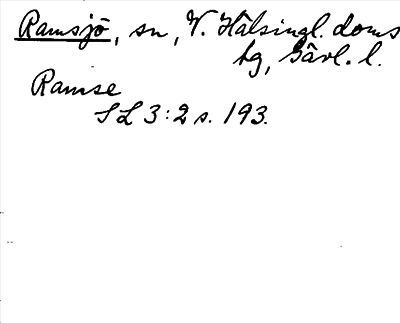 Ramsjö, sn, V. Hälsingl. doms
hg, Gävl. l.
Ramse
SL 3:2 s. 193.